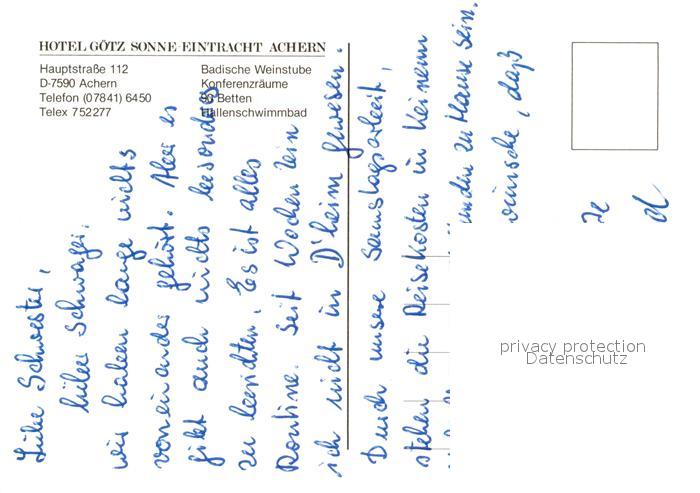 HOTEL GÖTZ SONNE-EINTRACHT ACHERN
Hauptstraße 112
D-7590 Achern
Telefon (07841) 6450
Telex 752277
Badische Weinstube
Konferenzräume
90 Betten
Hallenschwimmbad
Liebe Schwester,
lieber Schwager.
wir haben lange nichts
voneinander gehört. Aber es
gibt auch nichts besonderes
zu berichten. Es ist alles
Routine. Seit Wochen
ich nicht in D'heim gewesen.
Durch unsere Samstagsarbeit,
stehen die Reisekosten in keinem
zu Hause sein.
wünsche, daß
privacy protection
Datenschutz